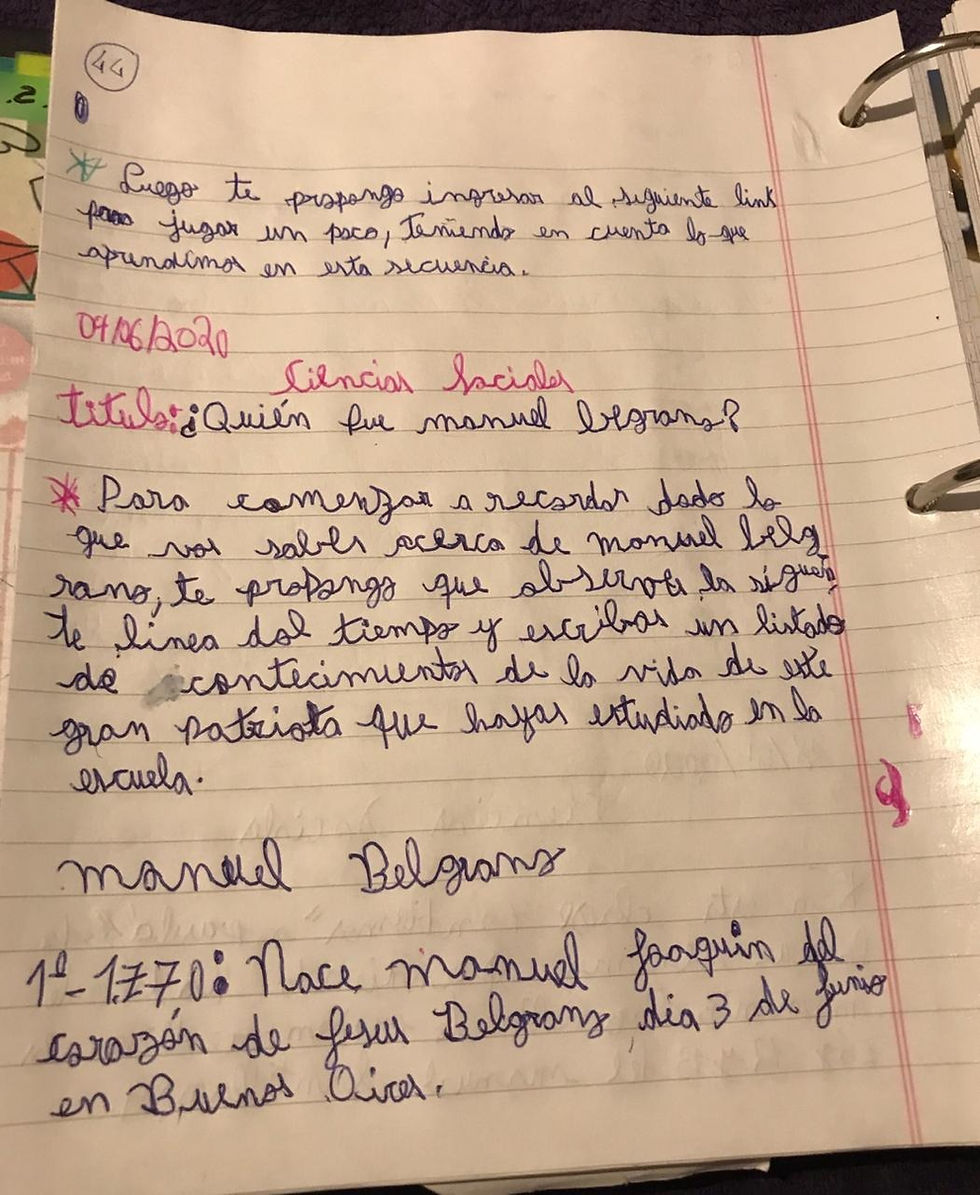 44
* Luego te propongo ingresar al siguiente link
para jugar un poco, Teniendo en cuenta lo que
aprendimos en esta secuencia.
04/06/2020
Ciencias Sociales
titulo: ¿Quién fue manuel belgrano?
* Para comenzar a recordar dado lo
que vos sabes acerca de manuel belg
rano, te propongo que observes la siguen
te línea del tiempo y escribas un listado
de contecimientos de la vida de este
gran patriota que hayas estudiado en la
escuela.
manuel Belgrano
1º-1.770: Nace manuel Joaquin del
corazón de Jesus Belgrano, dia 3 de junio
en Buenos Aires.